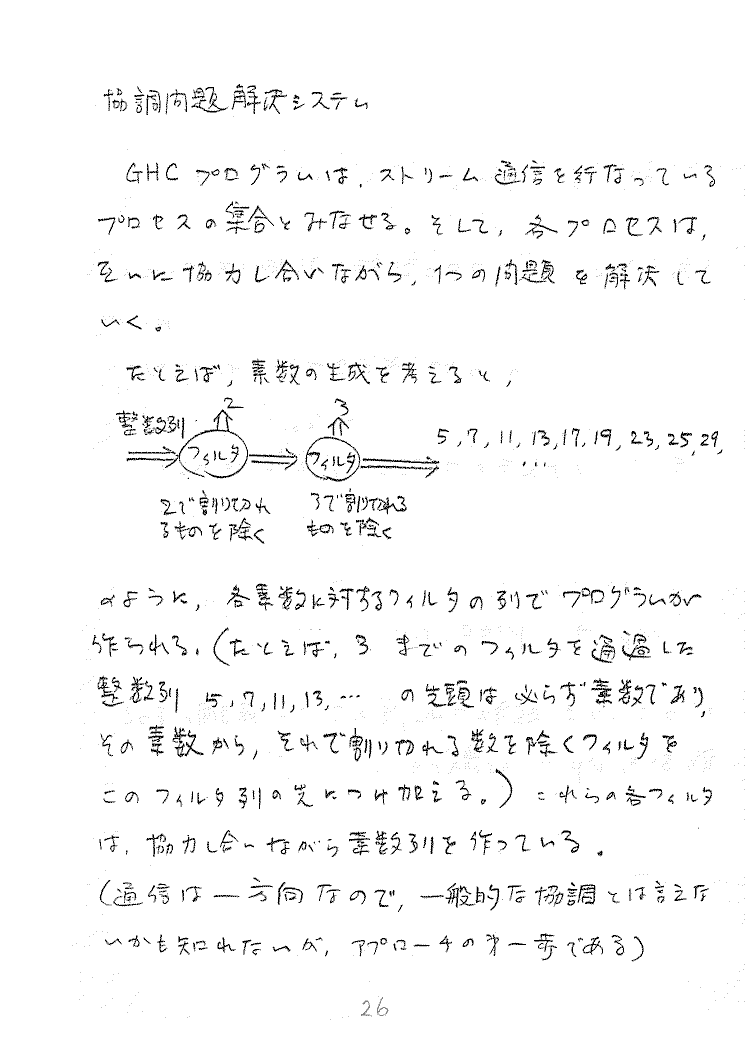 協調問題解決システム
GHCプログラムは、ストリーム通信を行なっている
プロセスの集合とみなせる。そして、各プロセスは、
互いに協力し合いながら、1つの問題を解決して
いく。
たとえば、素数の生成を考えると、
2
3
整数列
フィルタ
フィルタ
5, 7, 11, 13, 17, 19, 23, 25, 29,
...
2で割り切れ
るものを除く
3で割り切れる
ものを除く
のように、各素数に対するフィルタの列でプログラムが
作られる。(たとえば、3 までのフィルタを通過した
整数列 5, 7, 11, 13, … の先頭は必らず素数であり、
その素数から、それで割り切れる数を除くフィルタを
このフィルタ列の先につけ加える。) これらの各フィルタ
は、協力し合いながら素数列を作っている。
(通信は一方向なので、一般的な協調とは言えな
いかも知れないが、アプローチの第一歩である)
26